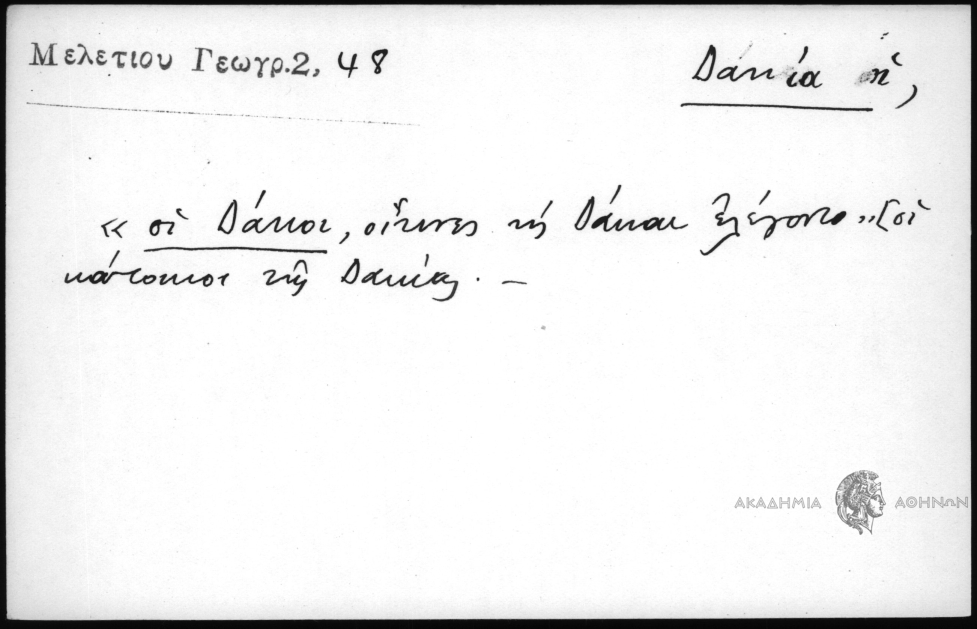 Μελετίου Γεωγρ.2, 48
Δακία ἡ,
« οἱ Δάκοι, οἵτινες καὶ Δάκαι ἐλέγοντο » [οἱ
κάτοικοι τῆς Δακίας. –
ΑΚΑΔΗΜΙΑ ΑΘΗΝΩΝ